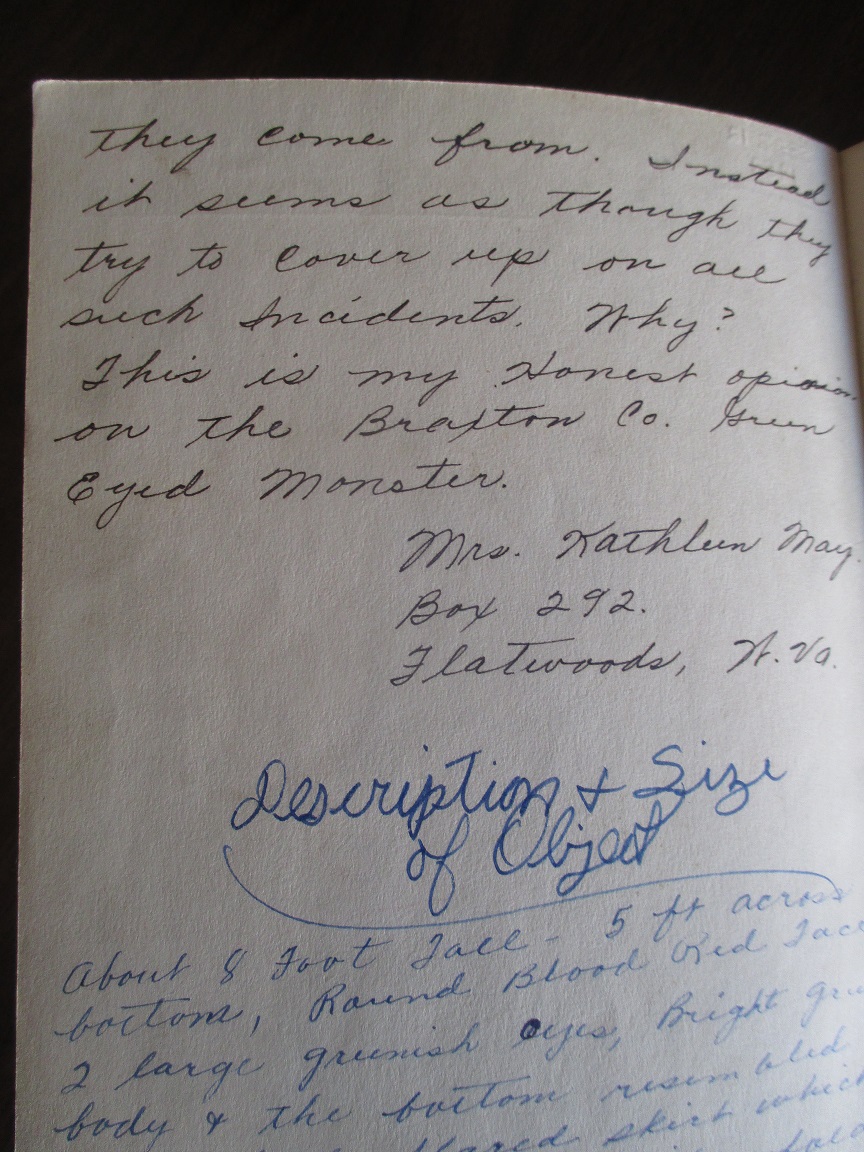 they come from. Instead
it seems as though they
try to cover up on all
such Incidents. Why?
This is my Honest opinion
on the Braxton Co. Green
Eyed Monster.
Mrs. Kathleen May.
Box 292.
Flatwoods, W. Va.
Description + Size
of Object
About 8 Foot Tall - 5 ft across
bottom, Round Blood Red Face
2 large greenish eyes, Bright
body & the bottom resembled
flared skirt which